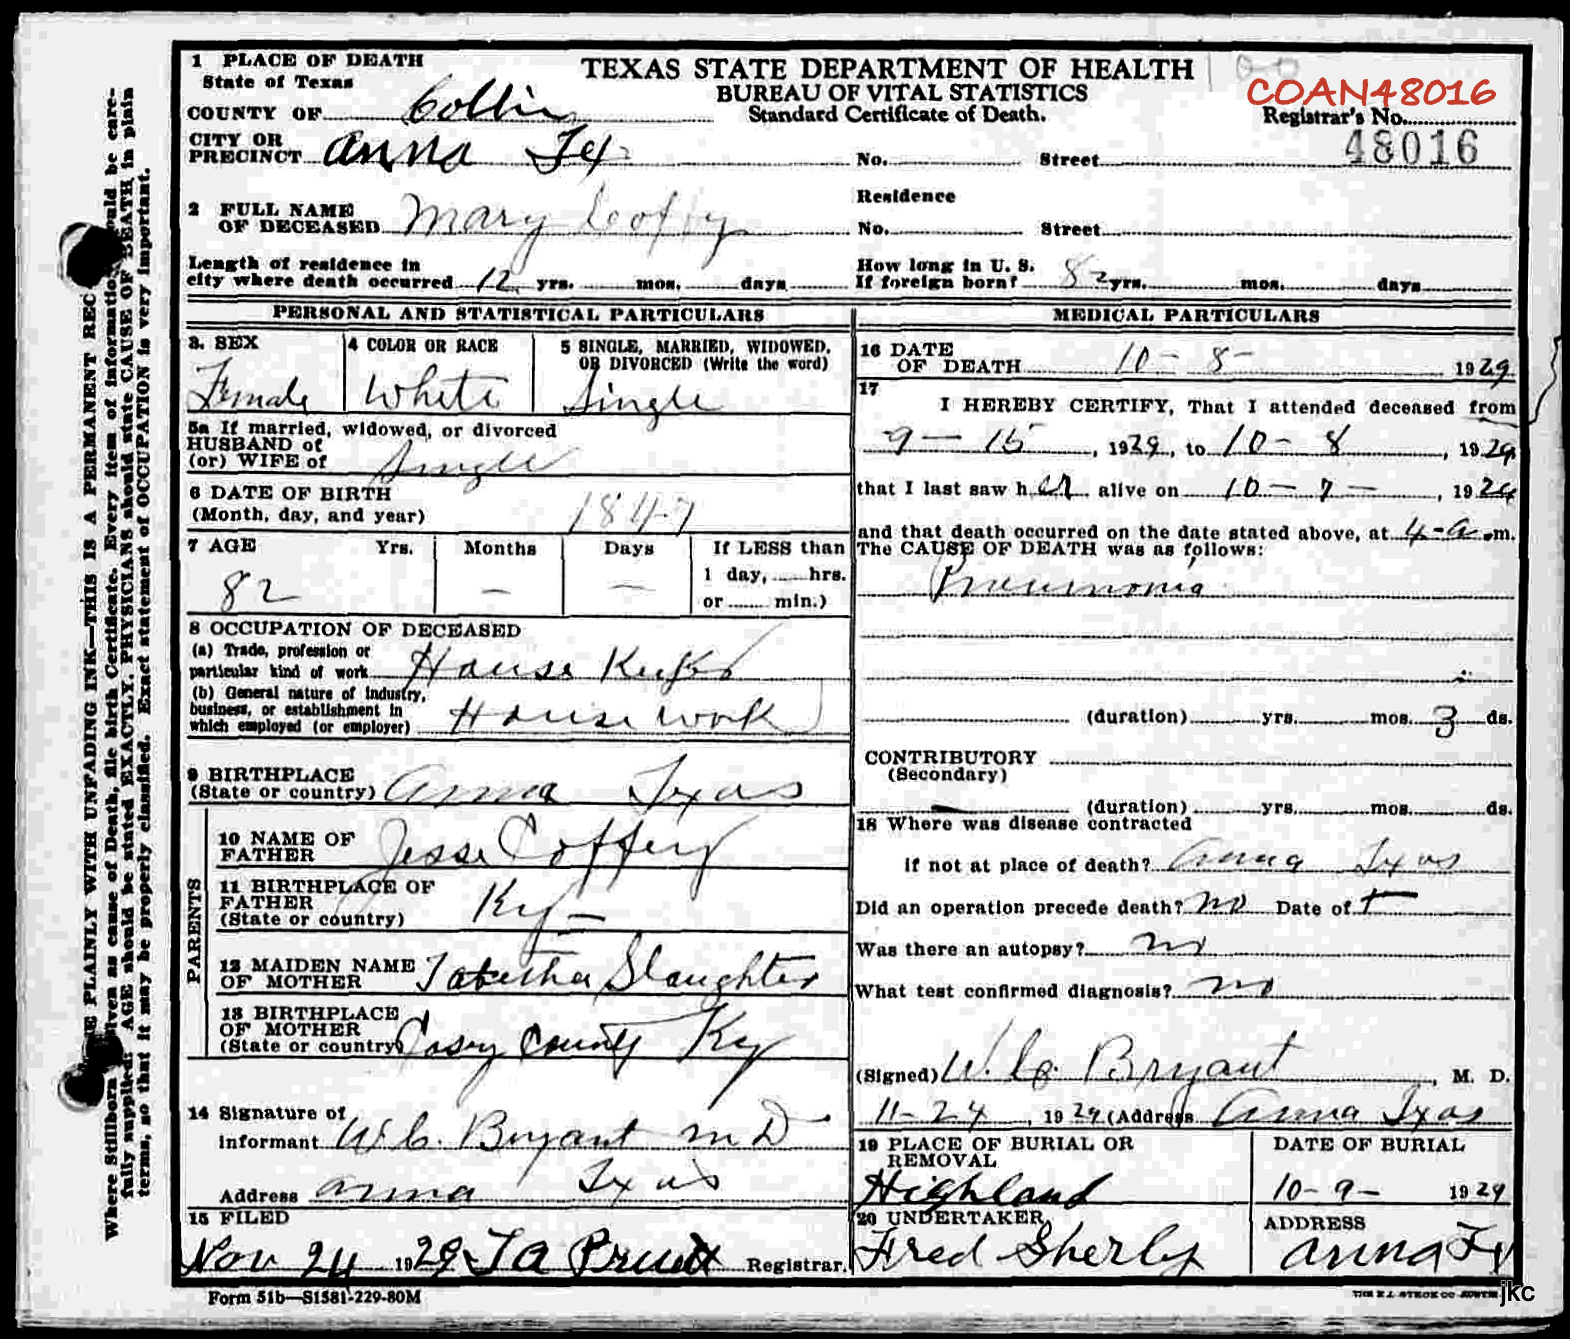 1 PLACE OF DEATH
State of Texas
COUNTY OF Collin
CITY OR
PRECINCT Anna Tex
TEXAS STATE DEPARTMENT OF HEALTH
BUREAU OF VITAL STATISTICS
Standard Certificate of Death.
COAN48016
Registrar's No.
48016
No. Street
2 FULL NAME
OF DECEASED Mary Coffy
Residence
No. Street
Length of residence in
city where death occurred 12 yrs. mos. days
How long in U. S.
If foreign born? 82 yrs. mos. days
PERSONAL AND STATISTICAL PARTICULARS
3. SEX
Female
4 COLOR OR RACE
White
5 SINGLE, MARRIED, WIDOWED,
OR DIVORCED (Write the word)
Single
5a If married, widowed, or divorced
HUSBAND of
(or) WIFE of Single
6 DATE OF BIRTH
(Month, day, and year) 1847
7 AGE Yrs. Months Days If LESS than
1 day, hrs.
82 — — or min.)
8 OCCUPATION OF DECEASED
(a) Trade, profession or
particular kind of work House Keeper
(b) General nature of industry,
business, or establishment in
which employed (or employer) House Work
9 BIRTHPLACE
(State or country) Anna Texas
PARENTS
10 NAME OF
FATHER Jesse Coffey
11 BIRTHPLACE OF
FATHER
(State or country) Ky —
12 MAIDEN NAME
OF MOTHER Tabetha Slaughter
13 BIRTHPLACE
OF MOTHER
(State or country) Casey County Ky
14 Signature of
informant W.C. Bryant M D
Address Anna Texas
15 FILED
Nov 24 1929 T A Pruett Registrar.
MEDICAL PARTICULARS
16 DATE
OF DEATH 10 - 8 - 1929
17
I HEREBY CERTIFY, That I attended deceased from
9 — 15, 1929, to 10 - 8, 1929
that I last saw her alive on 10 — 7 —, 1929
and that death occurred on the date stated above, at 4-a.m.
The CAUSE OF DEATH was as follows:
Pneumonia
(duration) yrs. mos. 3 ds.
CONTRIBUTORY
(Secondary)
(duration) yrs. mos. ds.
18 Where was disease contracted
if not at place of death? Anna Texas
Did an operation precede death? no Date of
Was there an autopsy? no
What test confirmed diagnosis? no
(Signed) W. C. Bryant, M. D.
11-24, 1929 (Address Anna Texas
19 PLACE OF BURIAL OR
REMOVAL
Highland
DATE OF BURIAL
10-9- 1929
20 UNDERTAKER
Fred Sherly
ADDRESS
Anna Tx
Form 51b—S1581-229-80M
jkc
E PLAINLY WITH UNFADING INK—THIS IS A PERMANENT REC
Where Stillborn given as cause of Death, file birth Certificate. Every item of information should be care-
fully supplied. AGE should be stated EXACTLY. PHYSICIANS should state CAUSE OF DEATH in plain
terms, so that it may be properly classified. Exact statement of OCCUPATION is very important.